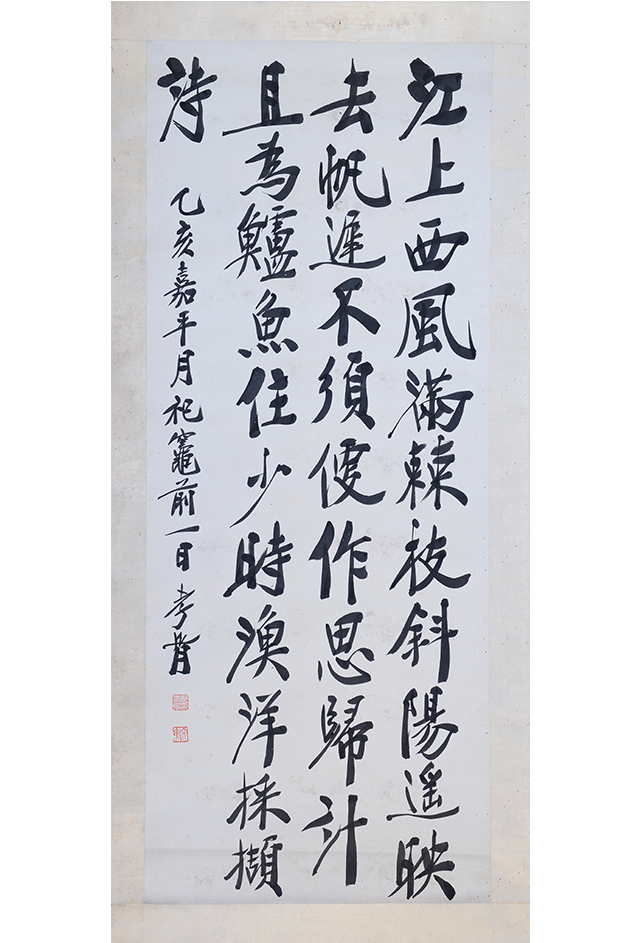 江上西風滿棘枝斜陽遥映
去帆遲不須便作思歸計
且為鱸魚住少時漁洋採擷
詩
乙亥嘉平月祀竈前一日孝胥